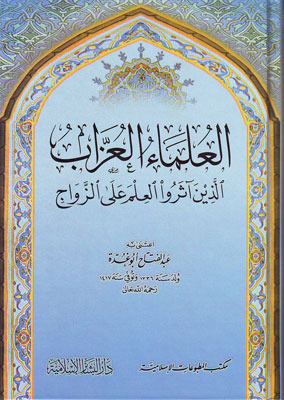 العُلَمَاءُ العُزَّابُ
الَّذِينَ آثَرُوا العِلْمَ عَلَى الزَّوَاجِ
اعتنى به
عبد الفتاح أبو غدة
ولد سنة ١٣٣٦ وتوفي سنة ١٤١٧
رحمه الله تعالى
مكتب المطبوعات الإسلامية
دار البشائر الإسلامية